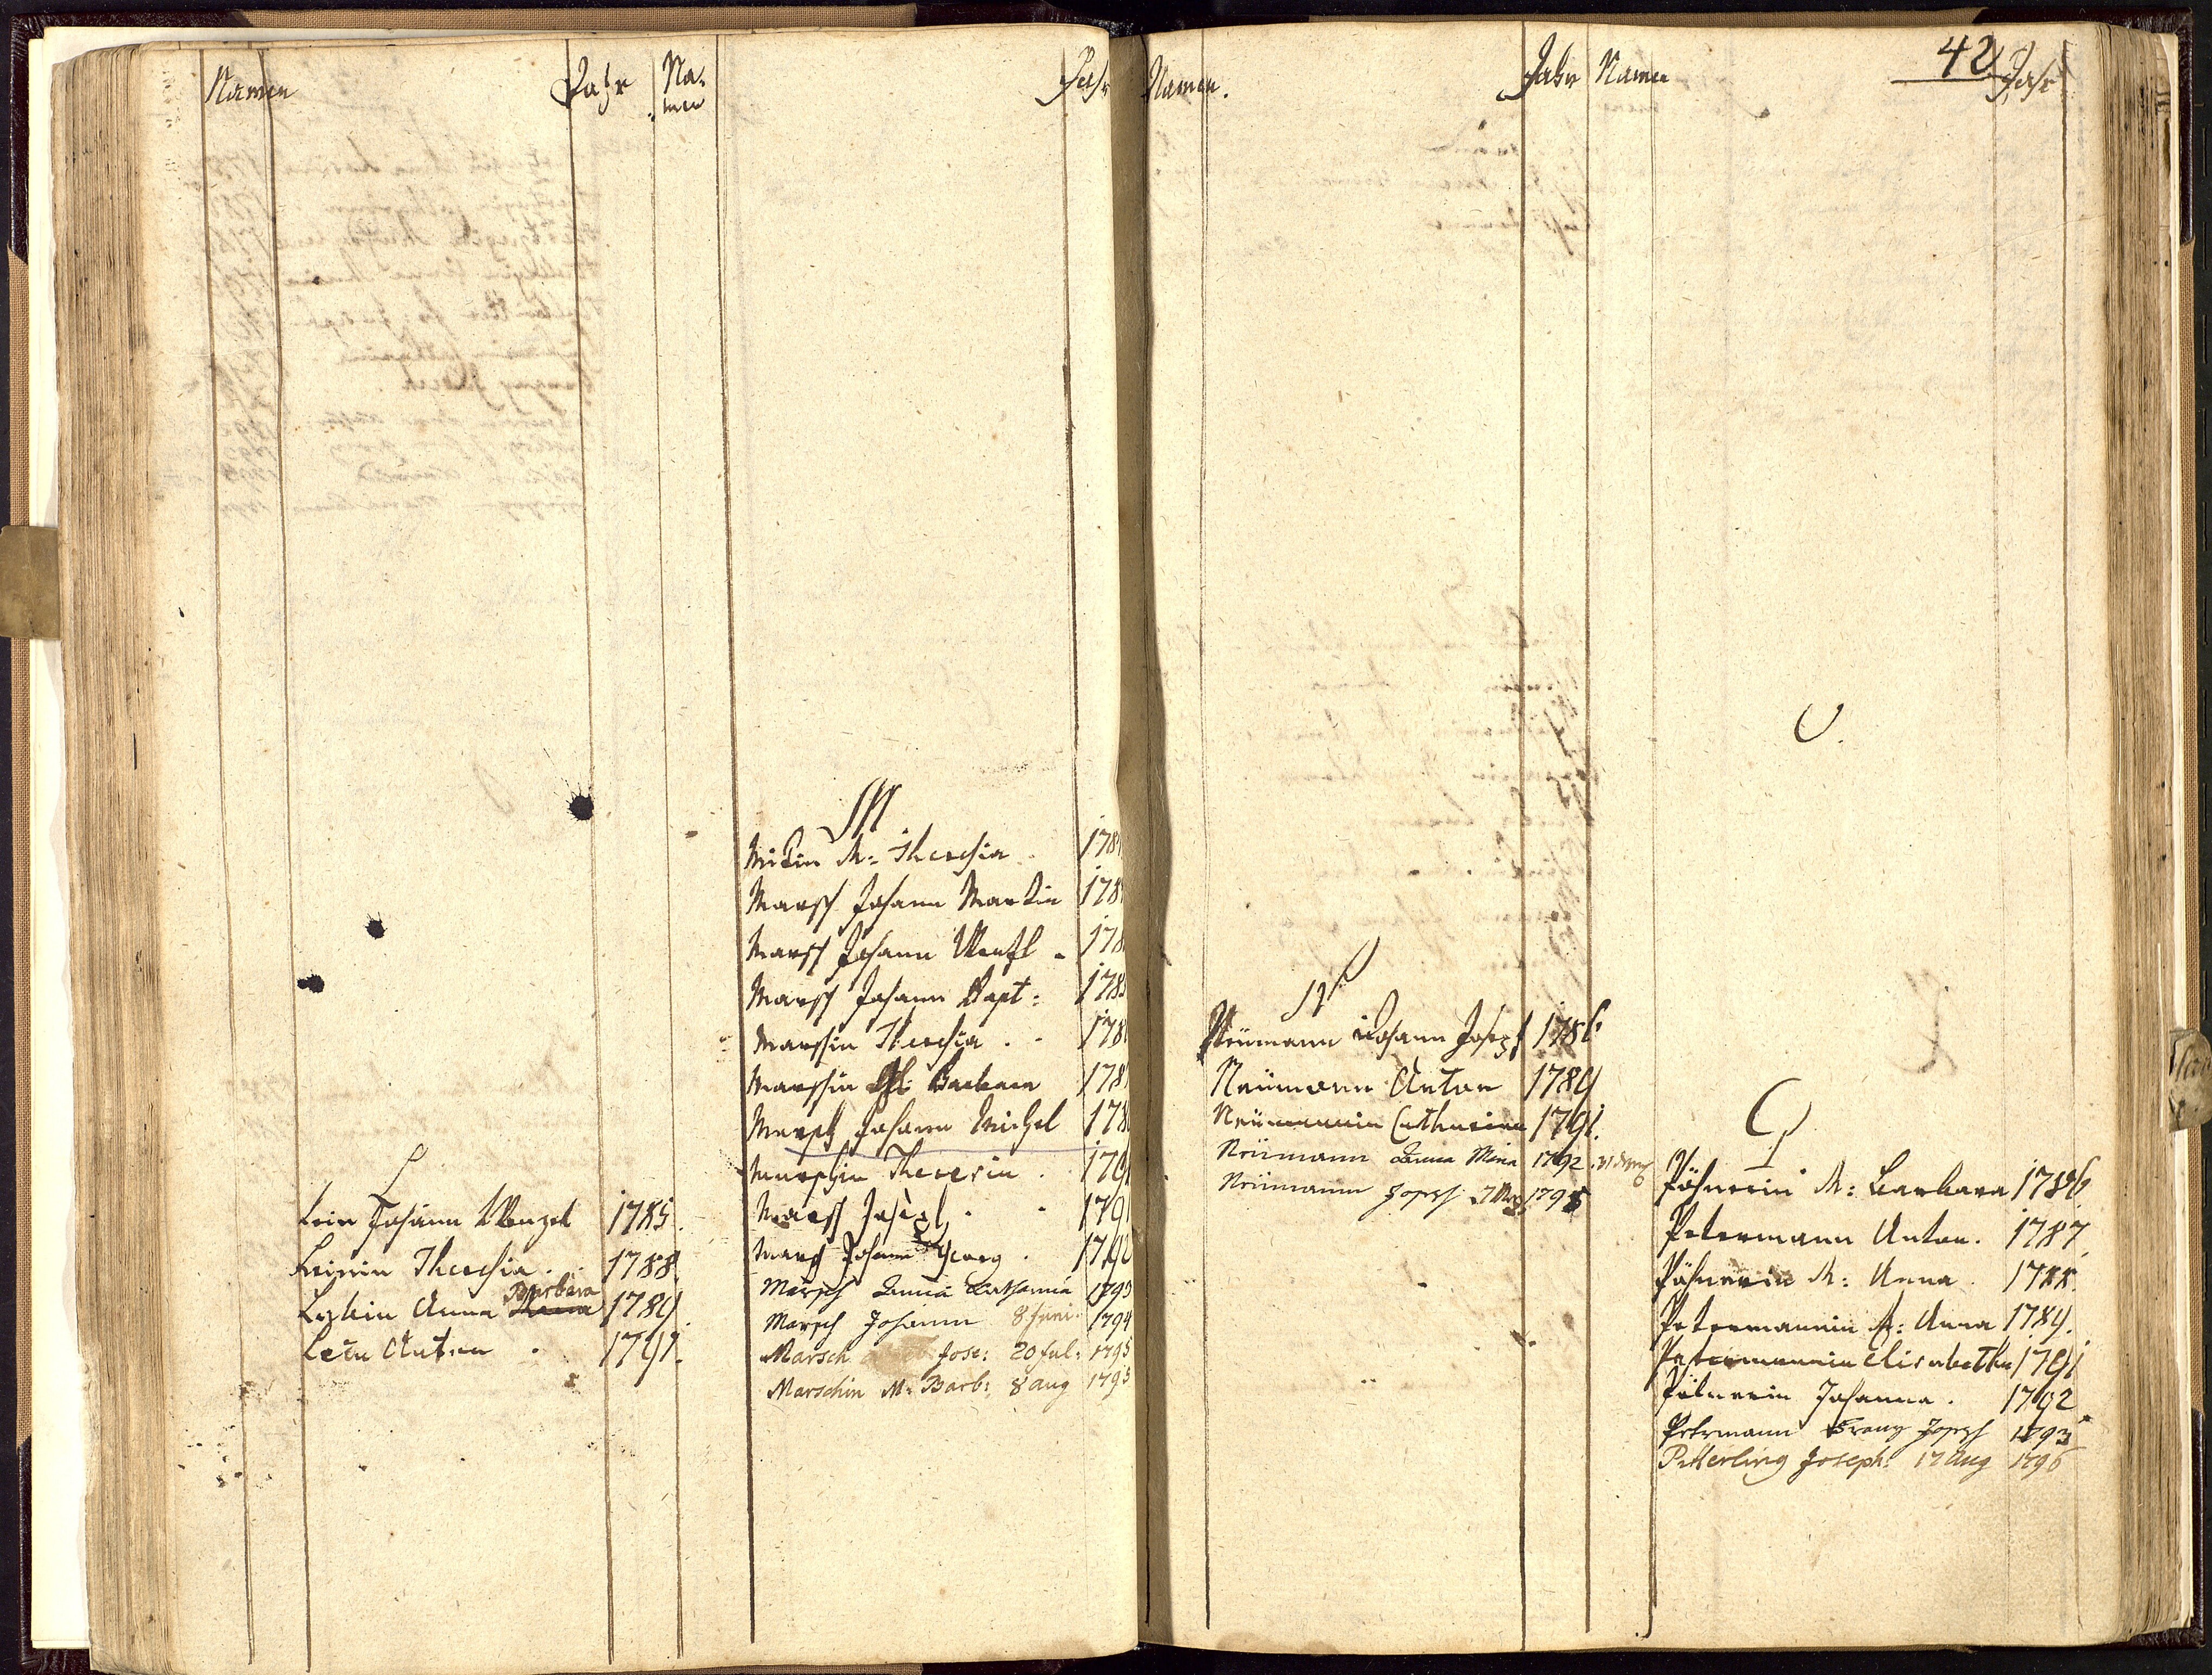 42
Namen Jahr
L
Lein Johann Wenzel 1785.
Leinin Theresia. 1788.
Barbara
Anna 1789.
Lein Anton 1791.
Na-
men Jahr
M
M: Theresia 178
Marsch Johann Martin 178
Marsch Johann Wenzl 178
Marsch Johann Bapt: 178
Marschin Theresia 178
Marschin Barbara 178
Marsch Johann Michel 178
Marschin Theresia 179
Marsch Joseph 179
Marsch Johann Georg 1792
Marsch Anna Catharina 1793
Marsch Johann 8 Juni 1794
Marsch Jose: 20 Jul: 1795
Marschin M: Barb: 8 aug 1795
Namen. Jahr
N
Neümann Johann Joseph 1786
Neümann Anton 1789
Neümannin Catharina 1791.
Neümann Anna Maria 1792
Neümann Joseph 1795
Namen Jahr
O.
P
M: Barbara 1786
Petermann Anton. 1787
M: Anna 1788.
Petermannin A: Anna 1789.
Petermannin Elisabetha 1791
Johanna. 1792
Petermann Franz Joseph 1793
Petterling Joseph: 17 Aug 1796